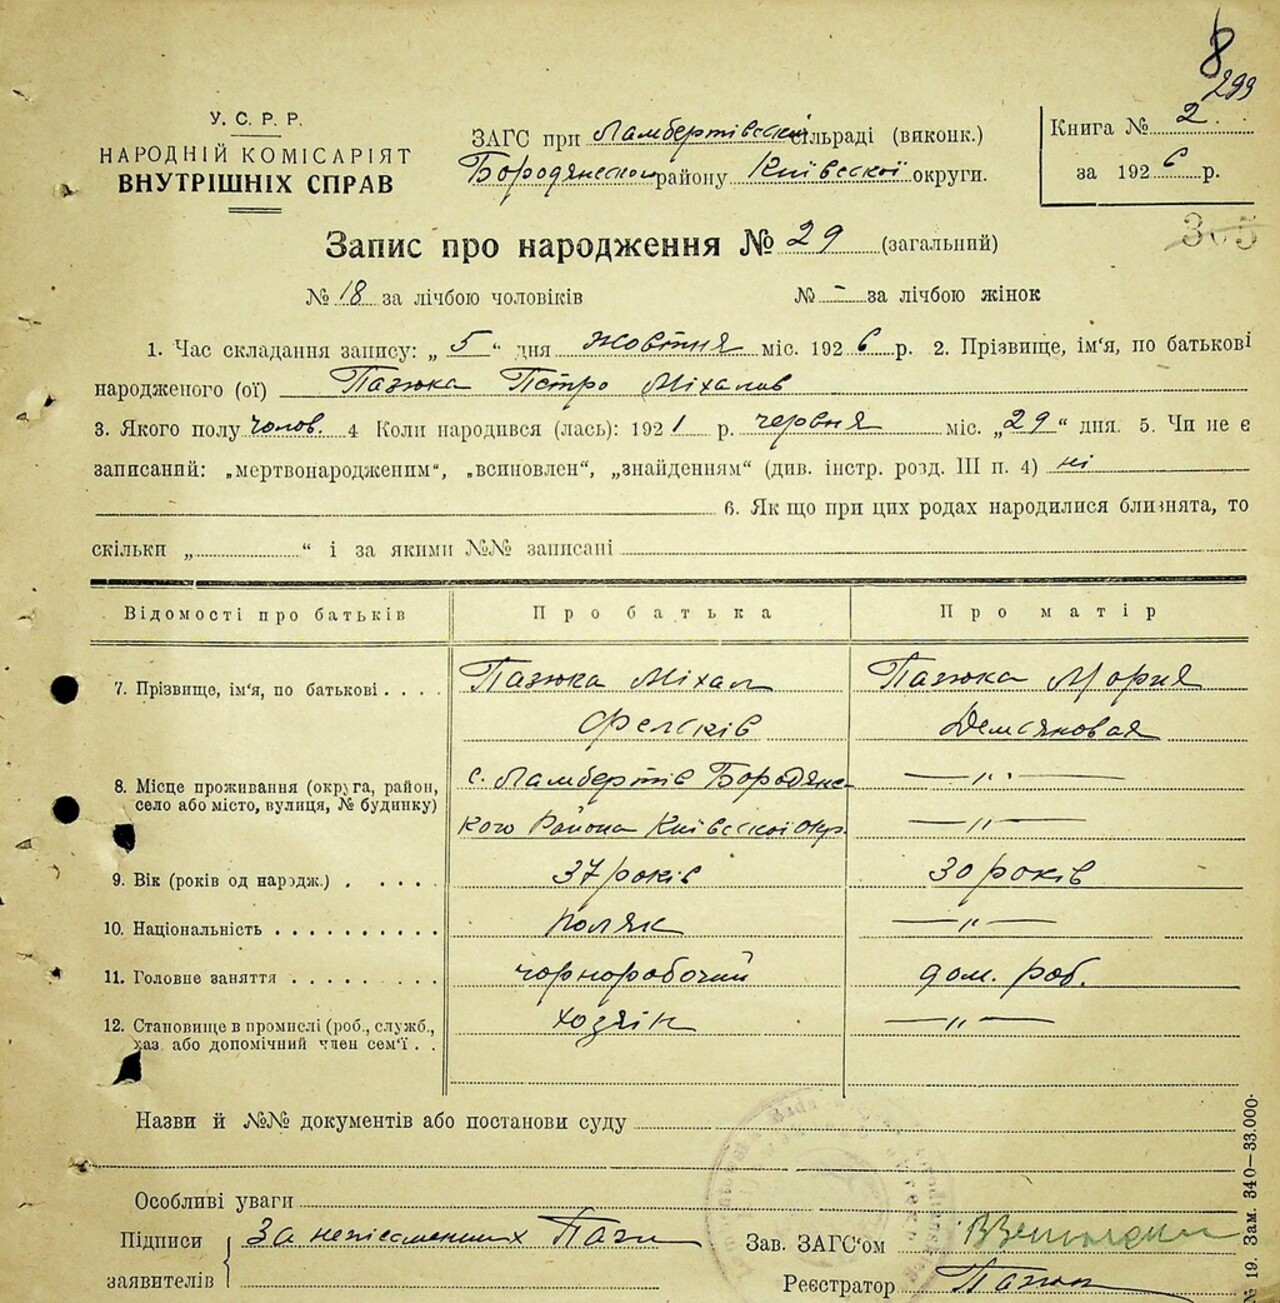 8
299
У. С. Р. Р.
НАРОДНІЙ КОМІСАРІЯТ
ВНУТРІШНІХ СПРАВ
ЗАГС при Ламбертівскій сільраді (виконк.)
Бородянском району Київскої округи.
Книга № 2
за 1926 р.
305
Запис про народження № 29 (загальний)
№ 18 за лічбою чоловіків № - за лічбою жінок
1. Час складання запису: „5“ дня жовтня міс. 1926 р. 2. Прізвище, ім‘я, по батькові
народженого (ої) Пазюка Петро Міхалов
3. Якого полу чолов. 4 Коли народився (лась): 1921 р. червня міс. „29“ дня. 5. Чи не є
записаний: „мертвонародженим“, „всиновлен“, „знайденням“ (див. інстр. розд. III п. 4) ні
6. Як що при цих родах народилися близнята, то
скільки „ “ і за якими №№ записані
Відомості про батьків Про батька Про матір
7. Прізвище, ім‘я, по батькові . . . . Пазюка Міхал Пазюка Мория
Демяновая
8. Місце проживання (округа, район, с. Ламбертів Бородянс- — „ —
село або місто, вулиця, № будинку)
кого Района Київскої окр. — „ —
9. Вік (років од народж.) . . . . . 37 років 30 років
10. Національність . . . . . . . . . . поляк — „ —
11. Головне заняття . . . . . . . . . чорноробочий дом. роб.
12. Становище в промислі (роб., служб., хозяїн — „ —
хаз. або допомічний член сем‘ї . .
Назви й №№ документів або постанови суду
Особливі уваги
Підписи За непісменних
Зав. ЗАГС‘ом
заявителів
Реєстратор
№ 19. Зам. 340—33.000.